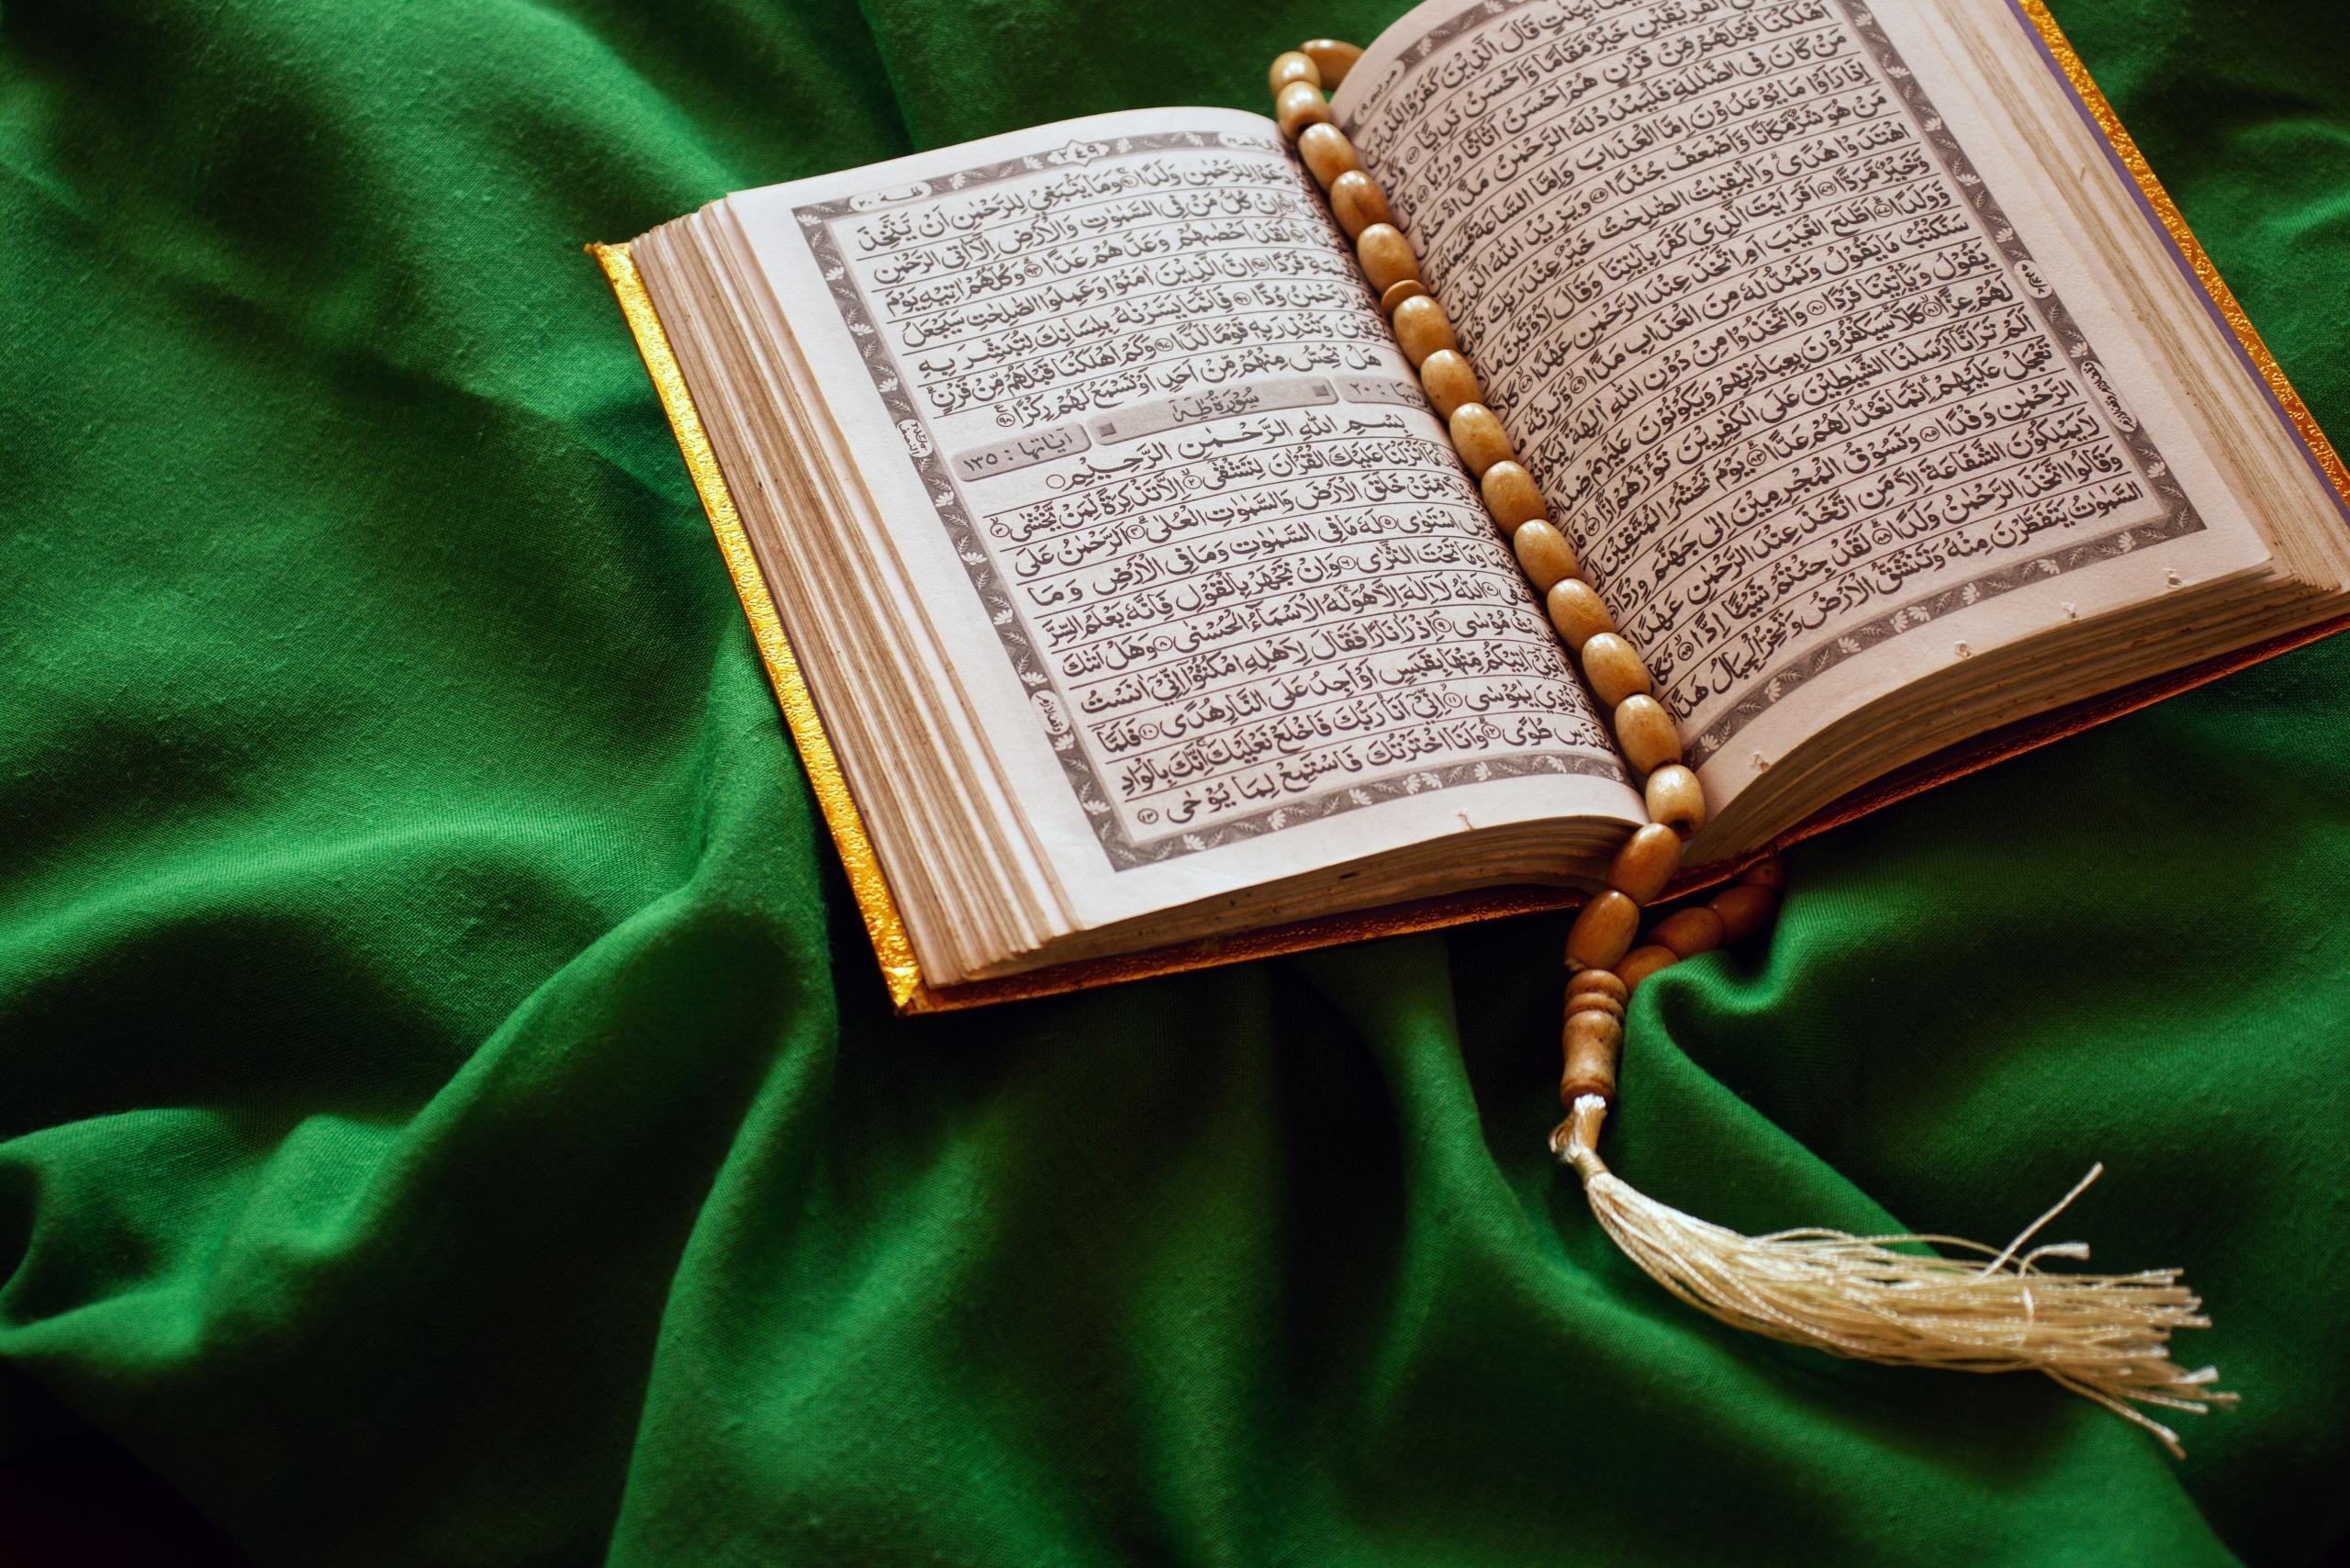 بَيِّنٰتٍ قَالَ الَّذِيْنَ كَفَرُوْا لِلَّذِيْنَ
الْفَرِيْقَيْنِ خَيْرٌ مَّقَامًا وَّاَحْسَنُ نَدِيًّا
اَهْلَكْنَا قَبْلَهُمْ مِّنْ قَرْنٍ هُمْ اَحْسَنُ اَثَاثًا وَّرِءْيًا
مَنْ كَانَ فِى الضَّلٰلَةِ فَلْيَمْدُدْ لَهُ الرَّحْمٰنُ مَدًّا
اِذَا رَاَوْا مَا يُوْعَدُوْنَ اِمَّا الْعَذَابَ وَاِمَّا السَّاعَةَ
مَنْ هُوَ شَرٌّ مَّكَانًا وَّاَضْعَفُ جُنْدًا وَيَزِيْدُ اللّٰهُ الَّذِيْنَ
اهْتَدَوْا هُدًى وَالْبٰقِيٰتُ الصّٰلِحٰتُ خَيْرٌ عِنْدَ رَبِّكَ
وَّخَيْرٌ مَّرَدًّا اَفَرَءَيْتَ الَّذِيْ كَفَرَ بِاٰيٰتِنَا وَقَالَ لَاُوْتَيَنَّ
وَّوَلَدًا اَطَّلَعَ الْغَيْبَ اَمِ اتَّخَذَ عِنْدَ الرَّحْمٰنِ عَهْدًا
سَنَكْتُبُ مَا يَقُوْلُ وَنَمُدُّ لَهٗ مِنَ الْعَذَابِ مَدًّا وَنَرِثُهٗ
يَقُوْلُ وَيَاْتِيْنَا فَرْدًا وَاتَّخَذُوْا مِنْ دُوْنِ اللّٰهِ اٰلِهَةً
لَهُمْ عِزًّا كَلَّا سَيَكْفُرُوْنَ بِعِبَادَتِهِمْ وَيَكُوْنُوْنَ عَلَيْهِمْ ضِدًّا
اَلَمْ تَرَ اَنَّا اَرْسَلْنَا الشَّيٰطِيْنَ عَلَى الْكٰفِرِيْنَ تَؤُزُّهُمْ اَزًّا
تَعْجَلْ عَلَيْهِمْ اِنَّمَا نَعُدُّ لَهُمْ عَدًّا يَوْمَ نَحْشُرُ الْمُتَّقِيْنَ
الرَّحْمٰنِ وَفْدًا وَّنَسُوْقُ الْمُجْرِمِيْنَ اِلٰى جَهَنَّمَ وِرْدًا
لَا يَمْلِكُوْنَ الشَّفَاعَةَ اِلَّا مَنِ اتَّخَذَ عِنْدَ الرَّحْمٰنِ عَهْدًا
وَقَالُوا اتَّخَذَ الرَّحْمٰنُ وَلَدًا لَقَدْ جِئْتُمْ شَيْئًا اِدًّا
السَّمٰوٰتُ يَتَفَطَّرْنَ مِنْهُ وَتَنْشَقُّ الْاَرْضُ وَتَخِرُّ الْجِبَالُ هَدًّا
٢٤٩
دَعَوْا لِلرَّحْمٰنِ وَلَدًا وَمَا يَنْبَغِيْ لِلرَّحْمٰنِ اَنْ يَّتَّخِذَ
كُلُّ مَنْ فِى السَّمٰوٰتِ وَالْاَرْضِ اِلَّا اٰتِى الرَّحْمٰنِ
لَقَدْ اَحْصٰىهُمْ وَعَدَّهُمْ عَدًّا وَكُلُّهُمْ اٰتِيْهِ يَوْمَ
فَرْدًا اِنَّ الَّذِيْنَ اٰمَنُوْا وَعَمِلُوا الصّٰلِحٰتِ سَيَجْعَلُ
الرَّحْمٰنُ وُدًّا فَاِنَّمَا يَسَّرْنٰهُ بِلِسَانِكَ لِتُبَشِّرَ بِهِ
وَتُنْذِرَ بِهٖ قَوْمًا لُّدًّا وَكَمْ اَهْلَكْنَا قَبْلَهُمْ مِّنْ قَرْنٍ
هَلْ تُحِسُّ مِنْهُمْ مِّنْ اَحَدٍ اَوْ تَسْمَعُ لَهُمْ رِكْزًا
سُوْرَةُ طٰهٰ
اٰيَاتُهَا : ١٣٥
بِسْمِ اللّٰهِ الرَّحْمٰنِ الرَّحِيْمِ
اَنْزَلْنَا عَلَيْكَ الْقُرْاٰنَ لِتَشْقٰى اِلَّا تَذْكِرَةً لِّمَنْ يَّخْشٰى
مِّمَّنْ خَلَقَ الْاَرْضَ وَالسَّمٰوٰتِ الْعُلٰى اَلرَّحْمٰنُ عَلَى
اسْتَوٰى لَهٗ مَا فِى السَّمٰوٰتِ وَمَا فِى الْاَرْضِ وَمَا
وَمَا تَحْتَ الثَّرٰى وَاِنْ تَجْهَرْ بِالْقَوْلِ فَاِنَّهٗ يَعْلَمُ السِّرَّ
اَللّٰهُ لَا اِلٰهَ اِلَّا هُوَ لَهُ الْاَسْمَاءُ الْحُسْنٰى وَهَلْ اَتٰىكَ
مُوْسٰى اِذْ رَاٰ نَارًا فَقَالَ لِاَهْلِهِ امْكُثُوْا اِنِّيْ اٰنَسْتُ
اٰتِيْكُمْ مِّنْهَا بِقَبَسٍ اَوْ اَجِدُ عَلَى النَّارِ هُدًى فَلَمَّا
نُوْدِيَ يٰمُوْسٰى اِنِّيْ اَنَا رَبُّكَ فَاخْلَعْ نَعْلَيْكَ اِنَّكَ بِالْوَادِ
طُوًى وَاَنَا اخْتَرْتُكَ فَاسْتَمِعْ لِمَا يُوْحٰى